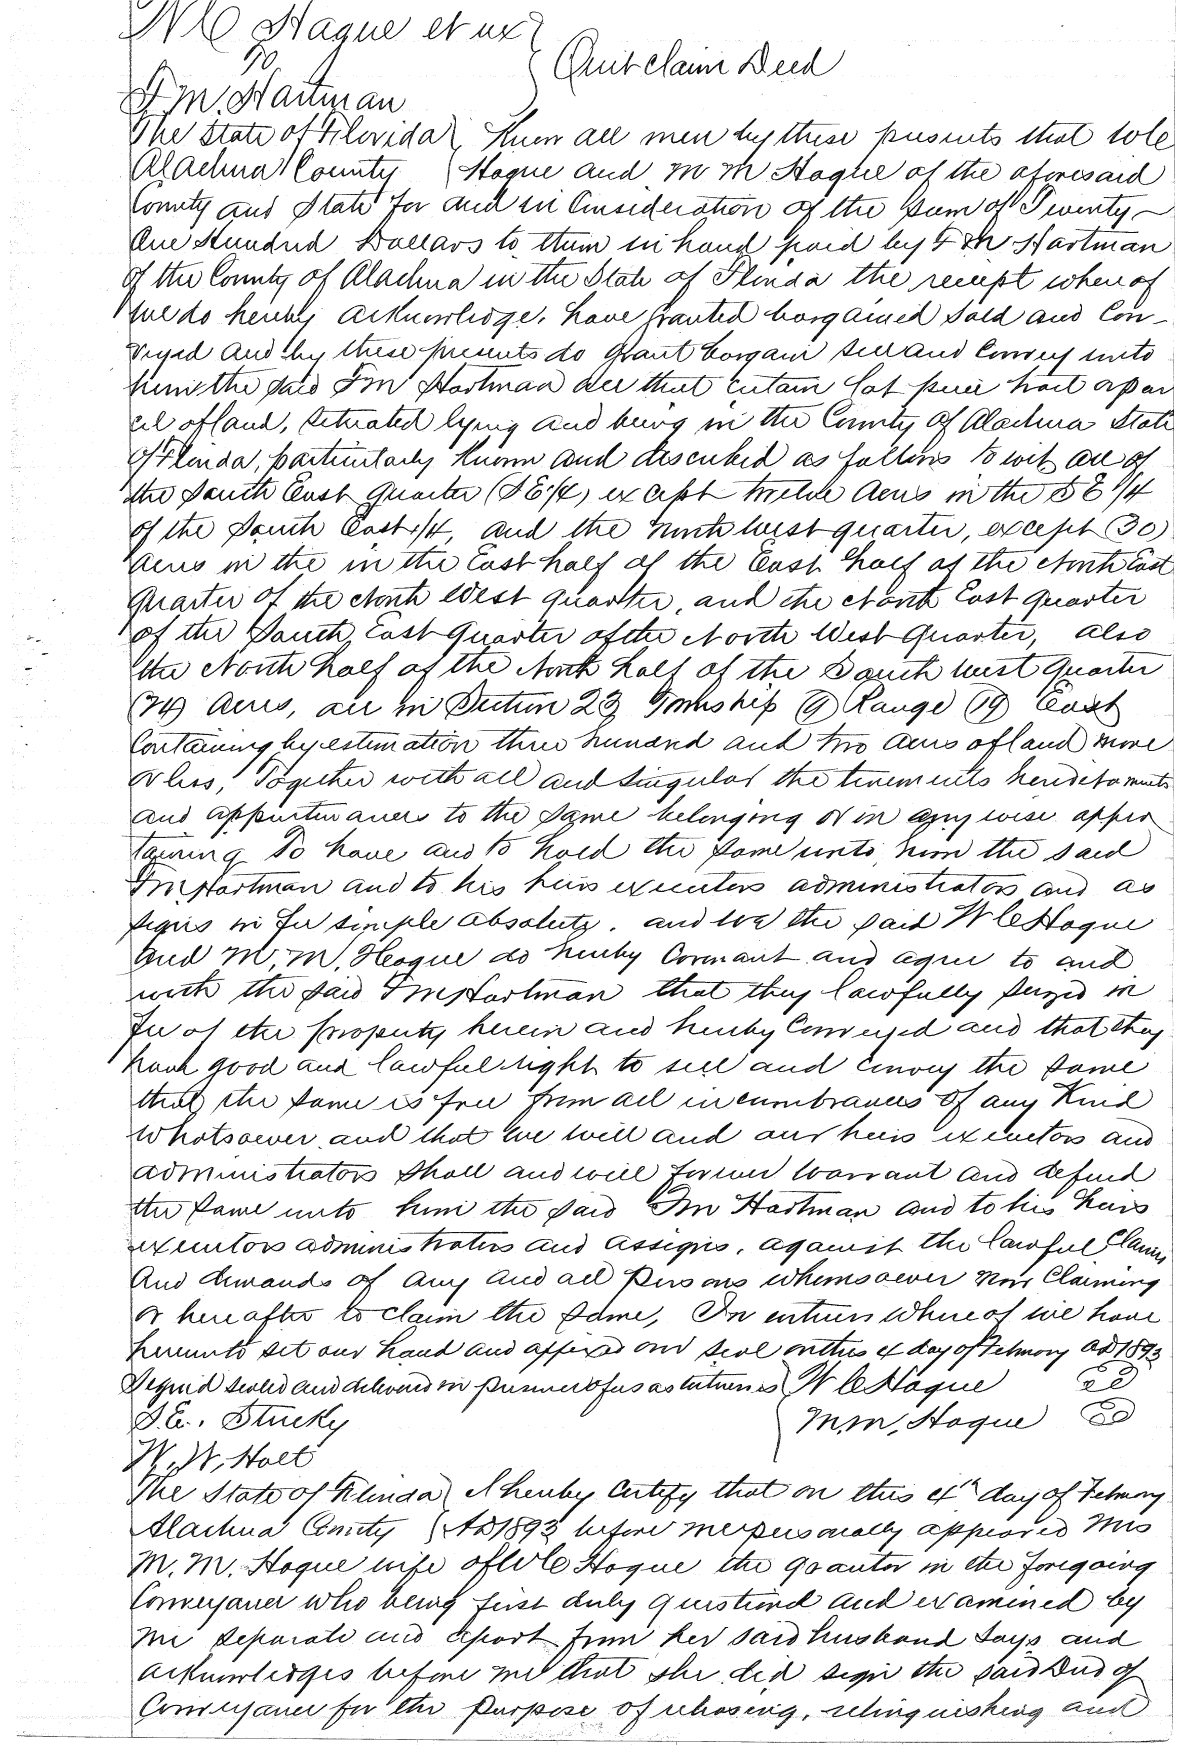 W C Hague et ux
to
Quit claim Deed
F. M. Hartman
The State of Florida Know all men by these presents that W C
Alachua County Hague and M M Hague of the aforesaid
County and State for and in Consideration of the Sum of Twenty
One Hundred Dollars to them in hand paid by F M Hartman
of the County of Alachua in the State of Florida the receipt whereof
we do hereby acknowledge, have granted bargained Sold and Con-
veyed and by these presents do grant bargain sell and Convey unto
him the said F M Hartman all that certain lot piece tract or par
cel of land, situated lying and being in the County of Alachua State
of Florida, particularly Known and described as follows to wit all of
the South East Quarter (S E 1/4) except twelve Acres in the S E 1/4
of the South East 1/4, and the North West quarter, except (30)
Acres in the in the East half of the East half of the North East
Quarter of the North West quarter, and the North East quarter
of the South East Quarter of the North West Quarter, also
the North half of the North half of the South West Quarter
(74) Acres, all in Section 23 Township (9) Range (19) East
Containing by estimation three hundred and two acres of land more
or less, Together with all and singular the tenements hereditaments
and appurtenances to the same belonging or in any wise apper
taining To have and to hold the same unto him the said
F M Hartman and to his heirs executors administrators and as
signs in fee simple absolute. and we the said W C Hague
and M. M. Hague do hereby Covenant and agree to and
with the said F M Hartman that they lawfully seized in
fee of the property herein and hereby Conveyed and that they
have good and lawful right to sell and convey the same
that the same is free from all incumbrances of any Kind
whatsoever, and that we will and our heirs executors and
administrators shall and will forever warrant and defend
the same unto him the said F M Hartman and to his heirs
executors administrators and assigns, against the lawful Claims
And demands of any and all persons whomsoever now Claiming
or hereafter to claim the same, In witness Whereof we have
hereunto set our hand and affixed our seal on this 4 day of Febuary AD 1893
Signed sealed and delivered in presence of us as witnesses W C Hague
S. E. Stucky M. M. Hague
W. W. Holt
The State of Florida I hereby Certify that on this 4th day of Febuary
Alachua County AD 1893 before me personally appeared Mrs
M. M. Hague wife of W C Hague the grantor in the foregoing
Conveyance who being first duly questioned and examined by
me separate and apart from her said husband says and
acknowledges before me that she did sign the said Deed of
Conveyance for the purpose of releasing, relinquishing and